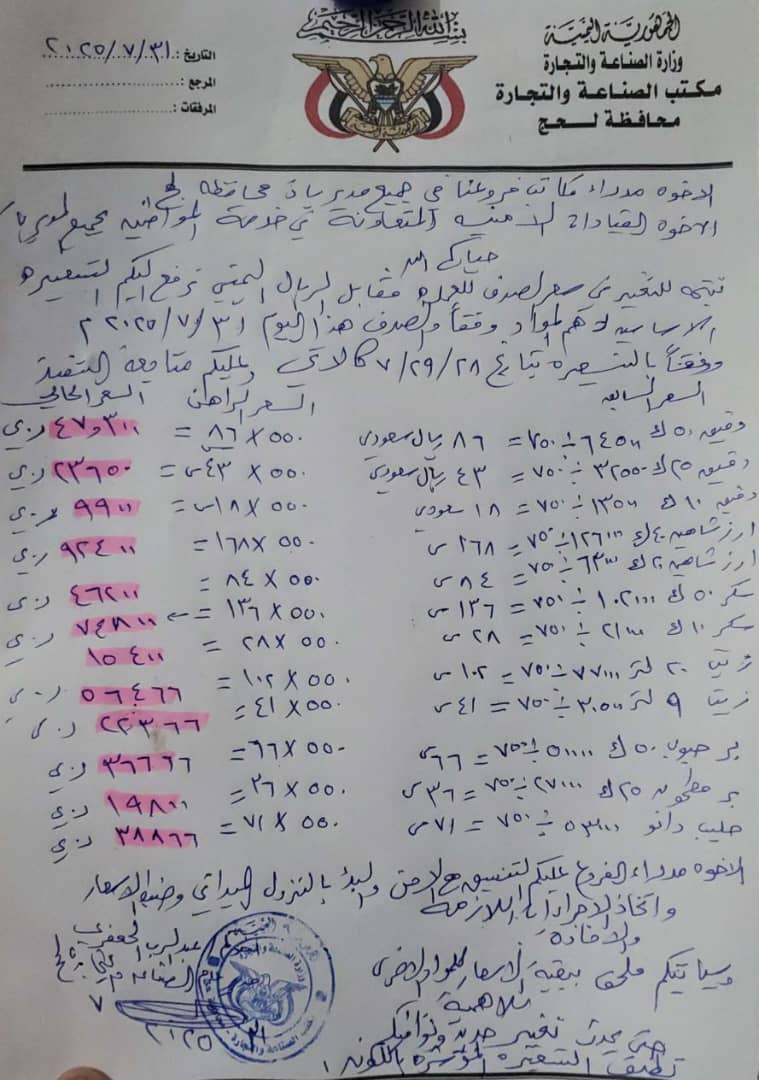 بسم الله الرحمن الرحيم
الجمهورية اليمنية
وزارة الصناعة والتجارة
مكتب الصناعة والتجارة
محافظة لحج
التاريخ : ٢٠٢٥/٧/٣١
المرجع :
المرفقات :
الاخوه مدراء مكاتب فروعنا في جميع مديريات محافظة لحج
الاخوه القيادات الامنيه المتعاونة في خدمة المواطنين بجميع
حياكم الله
نتيجه للتغير في سعر الصرف للعمله مقابل الريال اليمني نرفع اليكم التسعيره
الاساسيه لاهم المواد وفقاً والصرف هذا اليوم ٢٠٢٥/٧/٣١ م
وفقاً بالتسعيره بتاريخ ٧/٢٩/٢٨ كالاتي وعليكم متابعة التنفيذ
السعر السابق السعر الراهن السعر الحالي
دقيق ٥٠ ك ٦٤٥٠٠ ÷ ٧٥٠ = ٨٦ ريال سعودي ٥٥٠ × ٨٦ = ٤٧٣٠٠ ر.ي
دقيق ٢٥ ك ٣٢٥٠٠ ÷ ٧٥٠ = ٤٣ ريال سعودي ٥٥٠ × ٤٣ س = ٢٣٦٥٠ ر.ي
دقيق ١٠ ك ١٣٥٠٠ ÷ ٧٥٠ = ١٨ سعودي ٥٥٠ × ١٨ س = ٩٩٠٠ ر.ي
ارز شاهين ٤٠ ك ١٢٦٠٠٠ ÷ ٧٥٠ = ١٦٨ س ٥٥٠ × ١٦٨ = ٩٢٤٠٠ ر.ي
ارز شاهين ٢٠ ك ٦٣٠٠٠ ÷ ٧٥٠ = ٨٤ س ٥٥٠ × ٨٤ = ٤٦٢٠٠ ر.ي
سكر ٥٠ ك ١٠٢٠٠٠ ÷ ٧٥٠ = ١٣٦ س ٥٥٠ × ١٣٦ = ٧٤٨٠٠ ر.ي
سكر ١٠ ك ٢١٠٠٠ ÷ ٧٥٠ = ٢٨ س ٥٥٠ × ٢٨ = ١٥٤٠٠ ر.ي
زيت ٢٠ لتر ٧٧٠٠٠ ÷ ٧٥٠ = ١٠٢ س ٥٥٠ × ١٠٢ = ٥٦٤٦٦ ر.ي
زيت ٩ لتر ٣٠٥٠٠ ÷ ٧٥٠ = ٤١ س ٥٥٠ × ٤١ = ٢٢٣٦٦ ر.ي
بر حبوب ٥٠ ك ٥٠٠٠٠ ÷ ٧٥٠ = ٦٦ س ٥٥٠ × ٦٦ = ٣٦٦٦٦ ر.ي
بر مطحون ٢٥ ك ٢٧٠٠٠ ÷ ٧٥٠ = ٣٦ س ٥٥٠ × ٣٦ = ١٩٨٠٠ ر.ي
حليب دانو ٥٣٠٠٠ ÷ ٧٥٠ = ٧١ س ٥٥٠ × ٧١ = ٣٨٨٦٦ ر.ي
الاخوه مدراء الفروع عليكم التنسيق مع الامن والبدؤ بالنزول الميداني وضبط الاسعار
واتخاذ الاجراءات اللازمة
والافادة
وسياتيكم ملحق ببقية الاسعار للمواد الاخرى
للاهمية
حتى يحدث تغير جديد ونوافيكم
تطبق التسعيره المؤشره باللون
عبدالرب الجعفري
٣١ ٧ ٢٠٢٥